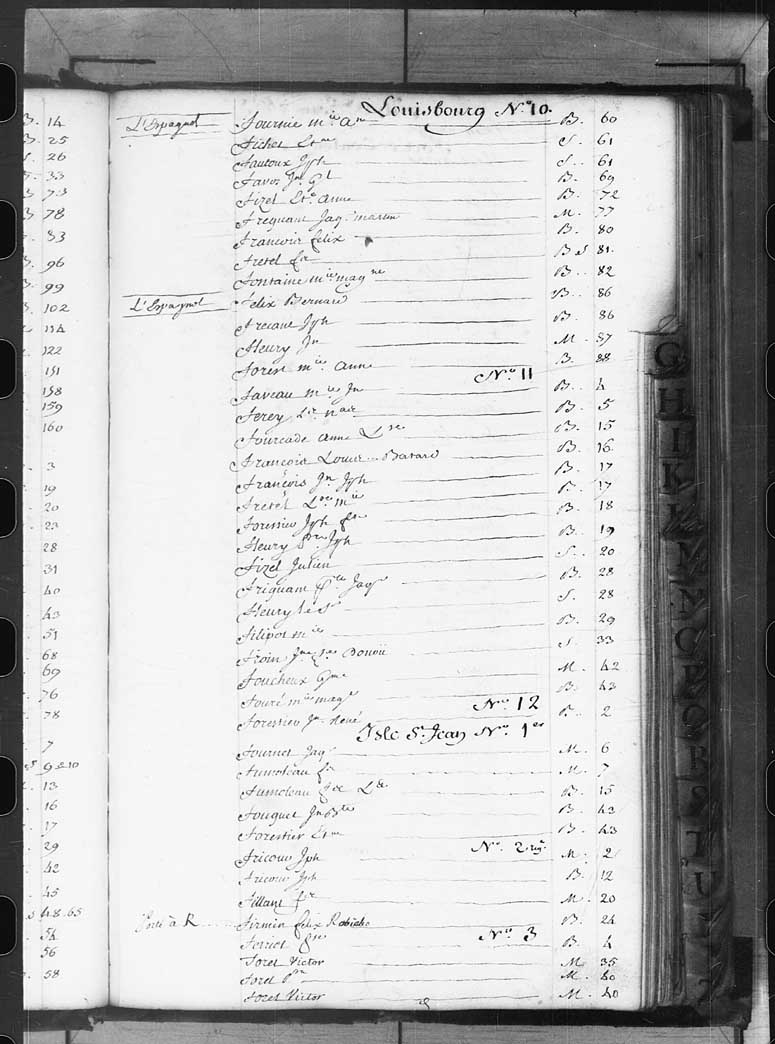 Louisbourg N.º 10.
B. 14
B. 25
S. 26
33
73
B 78
83
B. 96
B. 99
B. 102
114
122
151
158
159
160
3
19
20
23
28
31
40
43
51
68
69
76
78
7
9 & 10
13
16
17
29
42
45
48.65
54
56
58
L'Espagnol Fournie m.ie B. 60
Fichet Et.ne S. 61
Fautoux Jph S. 61
Favor B. 69
Fizel Et.e Anne B. 72
Frequant Jaq. martin M. 77
Francois felix B. 80
Fretel B & S. 81.
Fontaine m.ie mag.ne B. 82
L'Espagnol Felix Bernard B. 86
Frecant Jph B. 86
Fleury Jn M. 87
Forest m.ie Anne B. 88
N.º 11
Faveau m.ie Jn B. 4
Ferey B. 5
Fourcade Anne B. 15
François Louis Batard B. 16
François Jn Jph B. 17
Fretel m.ie B. 17
Forestier Jph B. 18
Fleury Jph B. 19
Fizel Julien S. 20
Friquant Jaq.s B. 28
Fleury S. 28
Filipot m.ie B. 29
Froin S. 33
Foucheux M. 42
Fouré m.ie mag.e B. 43
N.º 12
Forestier Jn René B. 2
Isle S.t Jean N.º 1.er
Fournet Jaq. M. 6
Fumoleau M. 7
Fumoleau B. 15
Fouquet Jn B.te B. 43
Forestier Et.ne B. 43
N.º 2
Fricour Jph M. 2
Fricour Jph B. 12
Fillant M. 20
Porté à R Firmin felix Robichs B. 24
N.º 3
Ferriot B. 4
Foret Victor M. 35
Foret M. 40
Foret Victor M. 40
G
H
I
K
L
M
N
O
P
Q
R
S
T
U